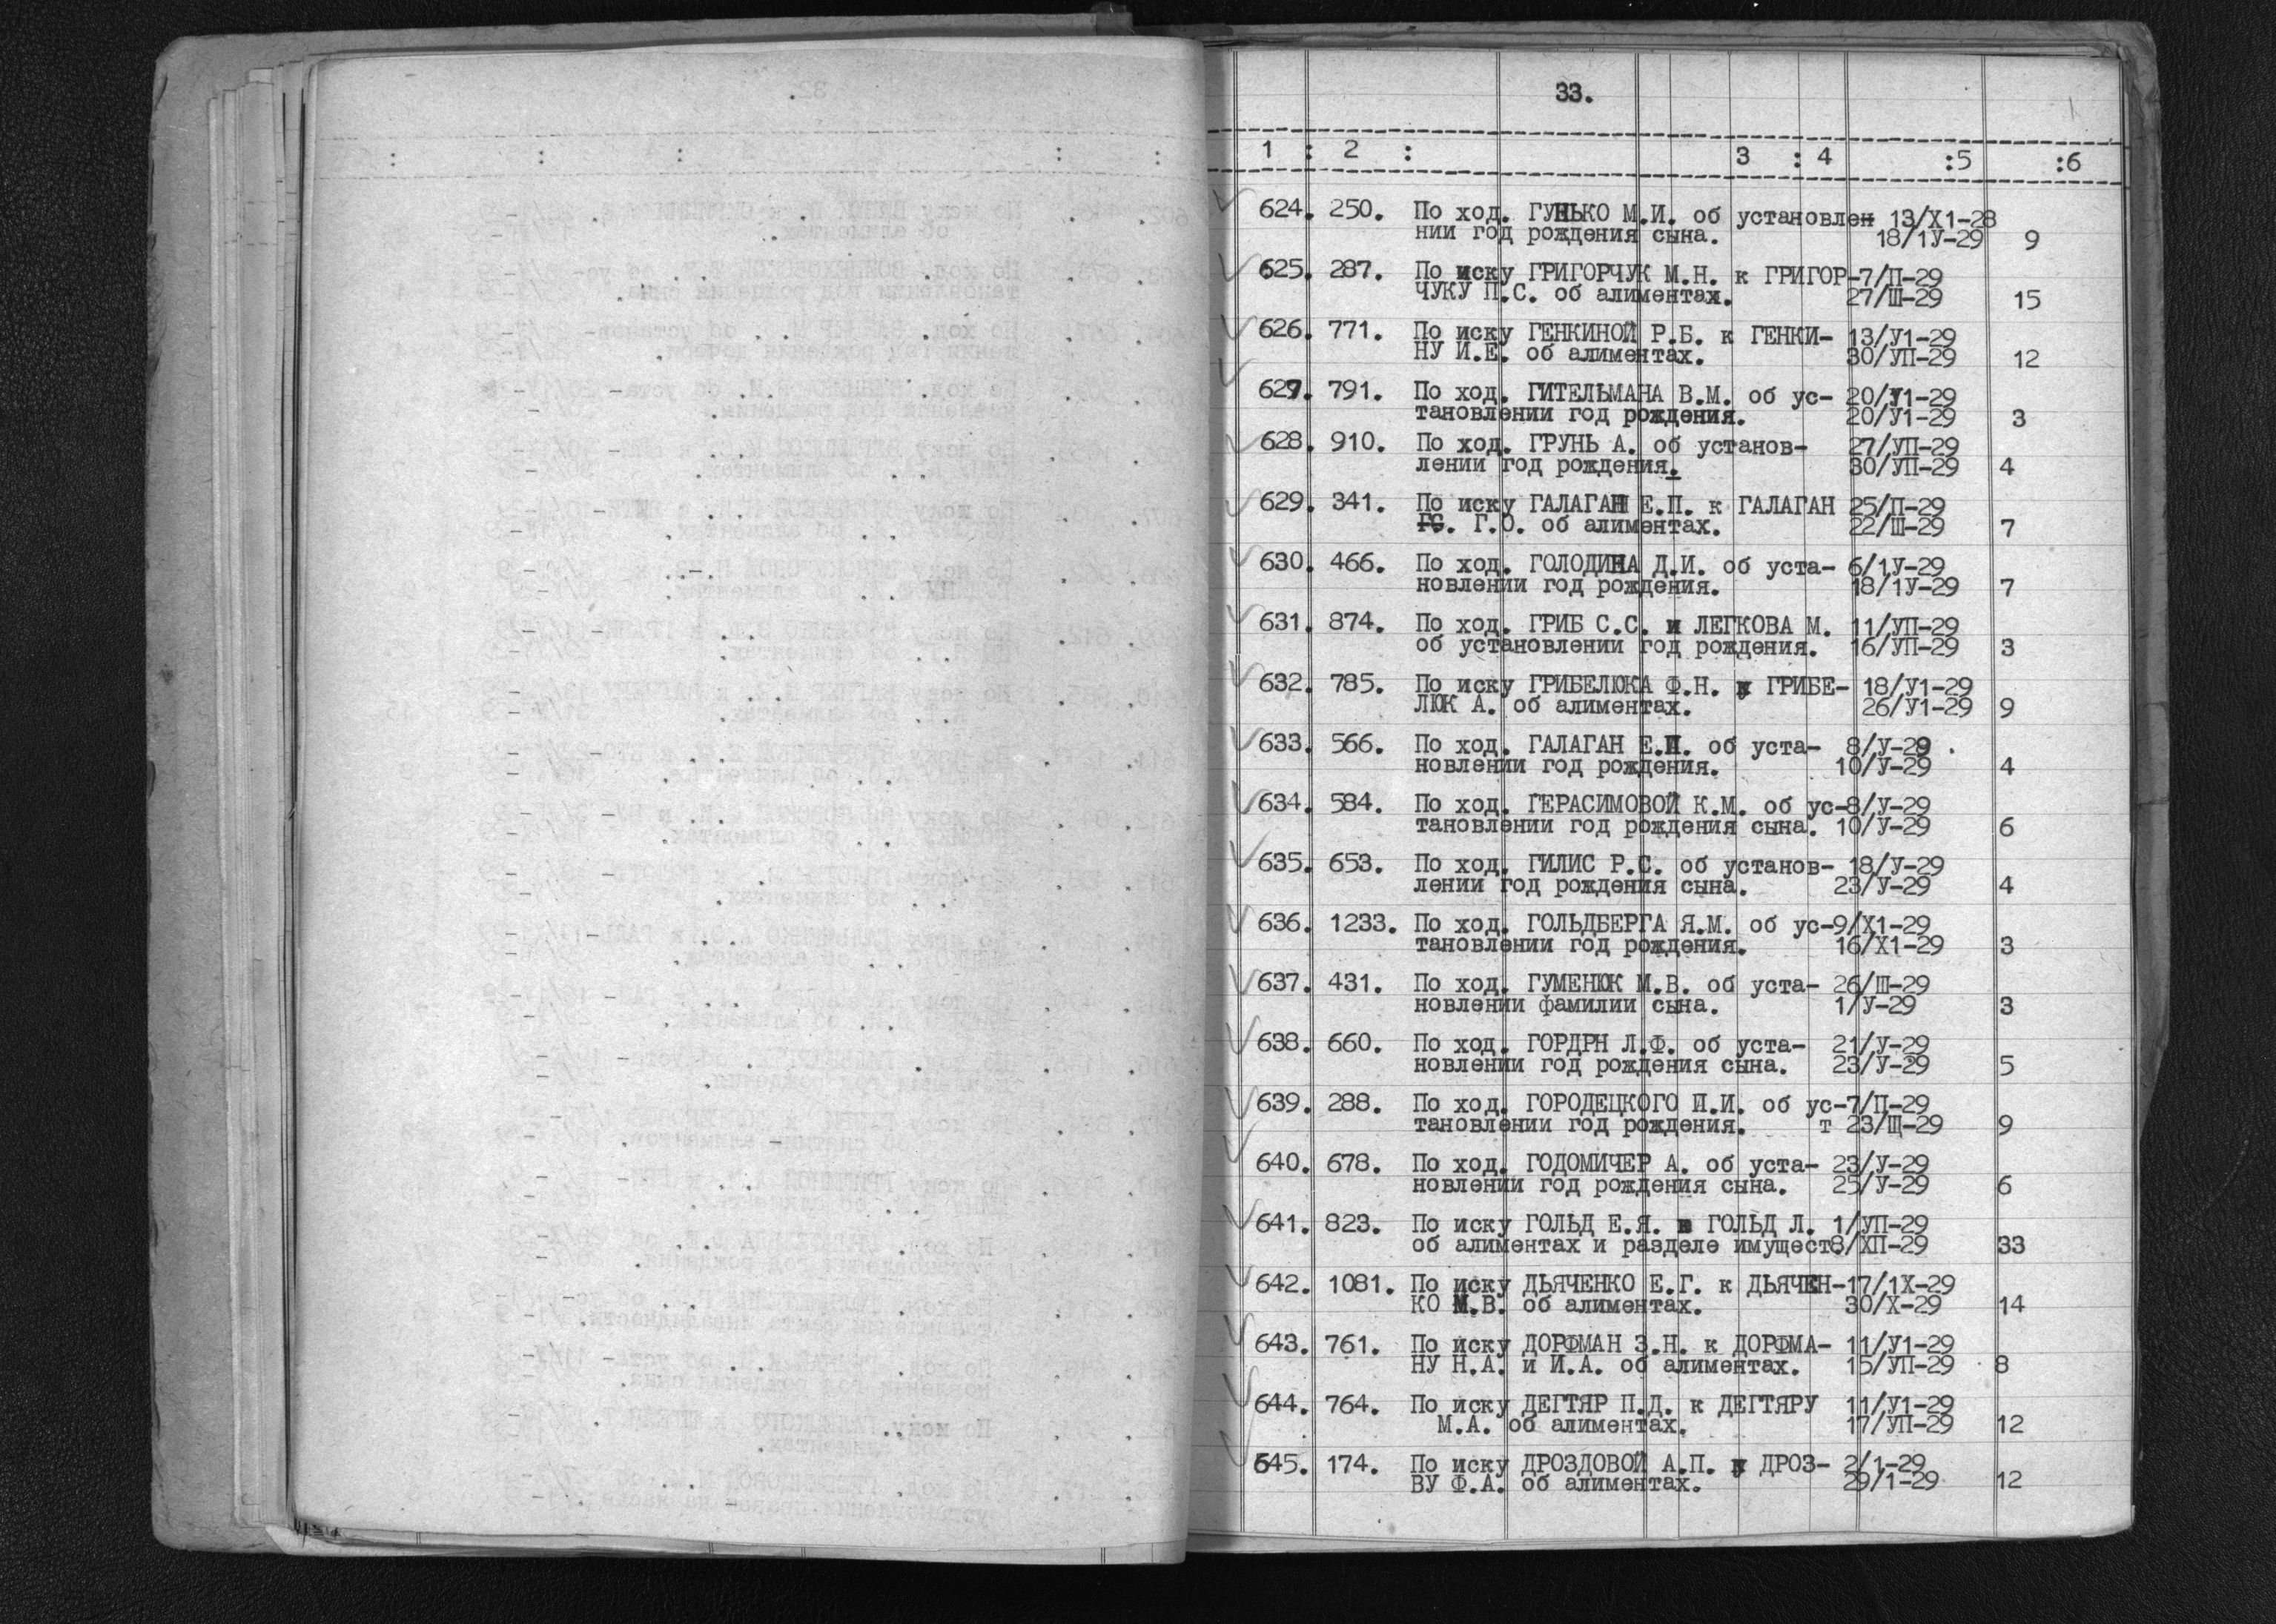 33.
1 : 2 : 3 : 4 :5 :6
624. 250. По ход. ГУНЬКО М.И. об установлен 13/Х1-28
нии год рождения сына. 18/1У-29 9
625. 287. По иску ГРИГОРЧУК М.Н. к ГРИГОР-7/П-29
ЧУКУ П.С. об алиментах. 27/Ш-29 15
626. 771. По иску ГЕНКИНОЙ Р.Б. к ГЕНКИ- 13/У1-29
НУ И.Е. об алиментах. 30/УП-29 12
627. 791. По ход. ГИТЕЛЬМАНА В.М. об ус- 20/У1-29
тановлении год рождения. 20/У1-29 3
628. 910. По ход. ГРУНЬ А. об установ- 27/УП-29
лении год рождения. 30/УП-29 4
629. 341. По иску ГАЛАГАН Е.П. к ГАЛАГАН 25/П-29
Г.О. об алиментах. 22/Ш-29 7
630. 466. По ход. ГОЛОДИНА Д.И. об уста- 6/1У-29
новлении год рождения. 18/1У-29 7
631. 874. По ход. ГРИБ С.С. и ЛЕГКОВА М. 11/УП-29
об установлении год рождения. 16/УП-29 3
632. 785. По иску ГРИБЕЛЮКА Ф.Н. к ГРИБЕ- 18/У1-29
ЛЮК А. об алиментах. 26/У1-29 9
633. 566. По ход. ГАЛАГАН Е.И. об уста- 8/У-29
новлении год рождения. 10/У-29 4
634. 584. По ход. ГЕРАСИМОВОЙ К.М. об ус-8/У-29
тановлении год рождения сына. 10/У-29 6
635. 653. По ход. ГИЛИС Р.С. об установ- 18/У-29
лении год рождения сына. 23/У-29 4
636. 1233. По ход. ГОЛЬДБЕРГА Я.М. об ус-9/Х1-29
тановлении год рождения. 16/Х1-29 3
637. 431. По ход. ГУМЕНЮК М.В. об уста- 26/Ш-29
новлении фамилии сына. 1/У-29 3
638. 660. По ход. ГОРДРН Л.Ф. об уста- 21/У-29
новлении год рождения сына. 23/У-29 5
639. 288. По ход. ГОРОДЕЦКОГО И.И. об ус-7/П-29
тановлении год рождения. т 23/Щ-29 9
640. 678. По ход. ГОДОМИЧЕР А. об уста- 23/У-29
новлении год рождения сына. 25/У-29 6
641. 823. По иску ГОЛЬД Е.Я. в ГОЛЬД Л. 1/УП-29
об алиментах и разделе имущест.8/ХП-29 33
642. 1081. По иску ДЬЯЧЕНКО Е.Г. к ДЬЯЧЕН-17/1Х-29
КО М.В. об алиментах. 30/Х-29 14
643. 761. По иску ДОРФМАН З.Н. к ДОРФМА- 11/У1-29
НУ Н.А. и И.А. об алиментах. 15/УП-29 8
644. 764. По иску ДЕГТЯР П.Д. к ДЕГТЯРУ 11/У1-29
М.А. об алиментах. 17/УП-29 12
645. 174. По иску ДРОЗДОВОЙ А.П. к ДРОЗ- 2/1-29
ВУ Ф.А. об алиментах. 29/1-29 12